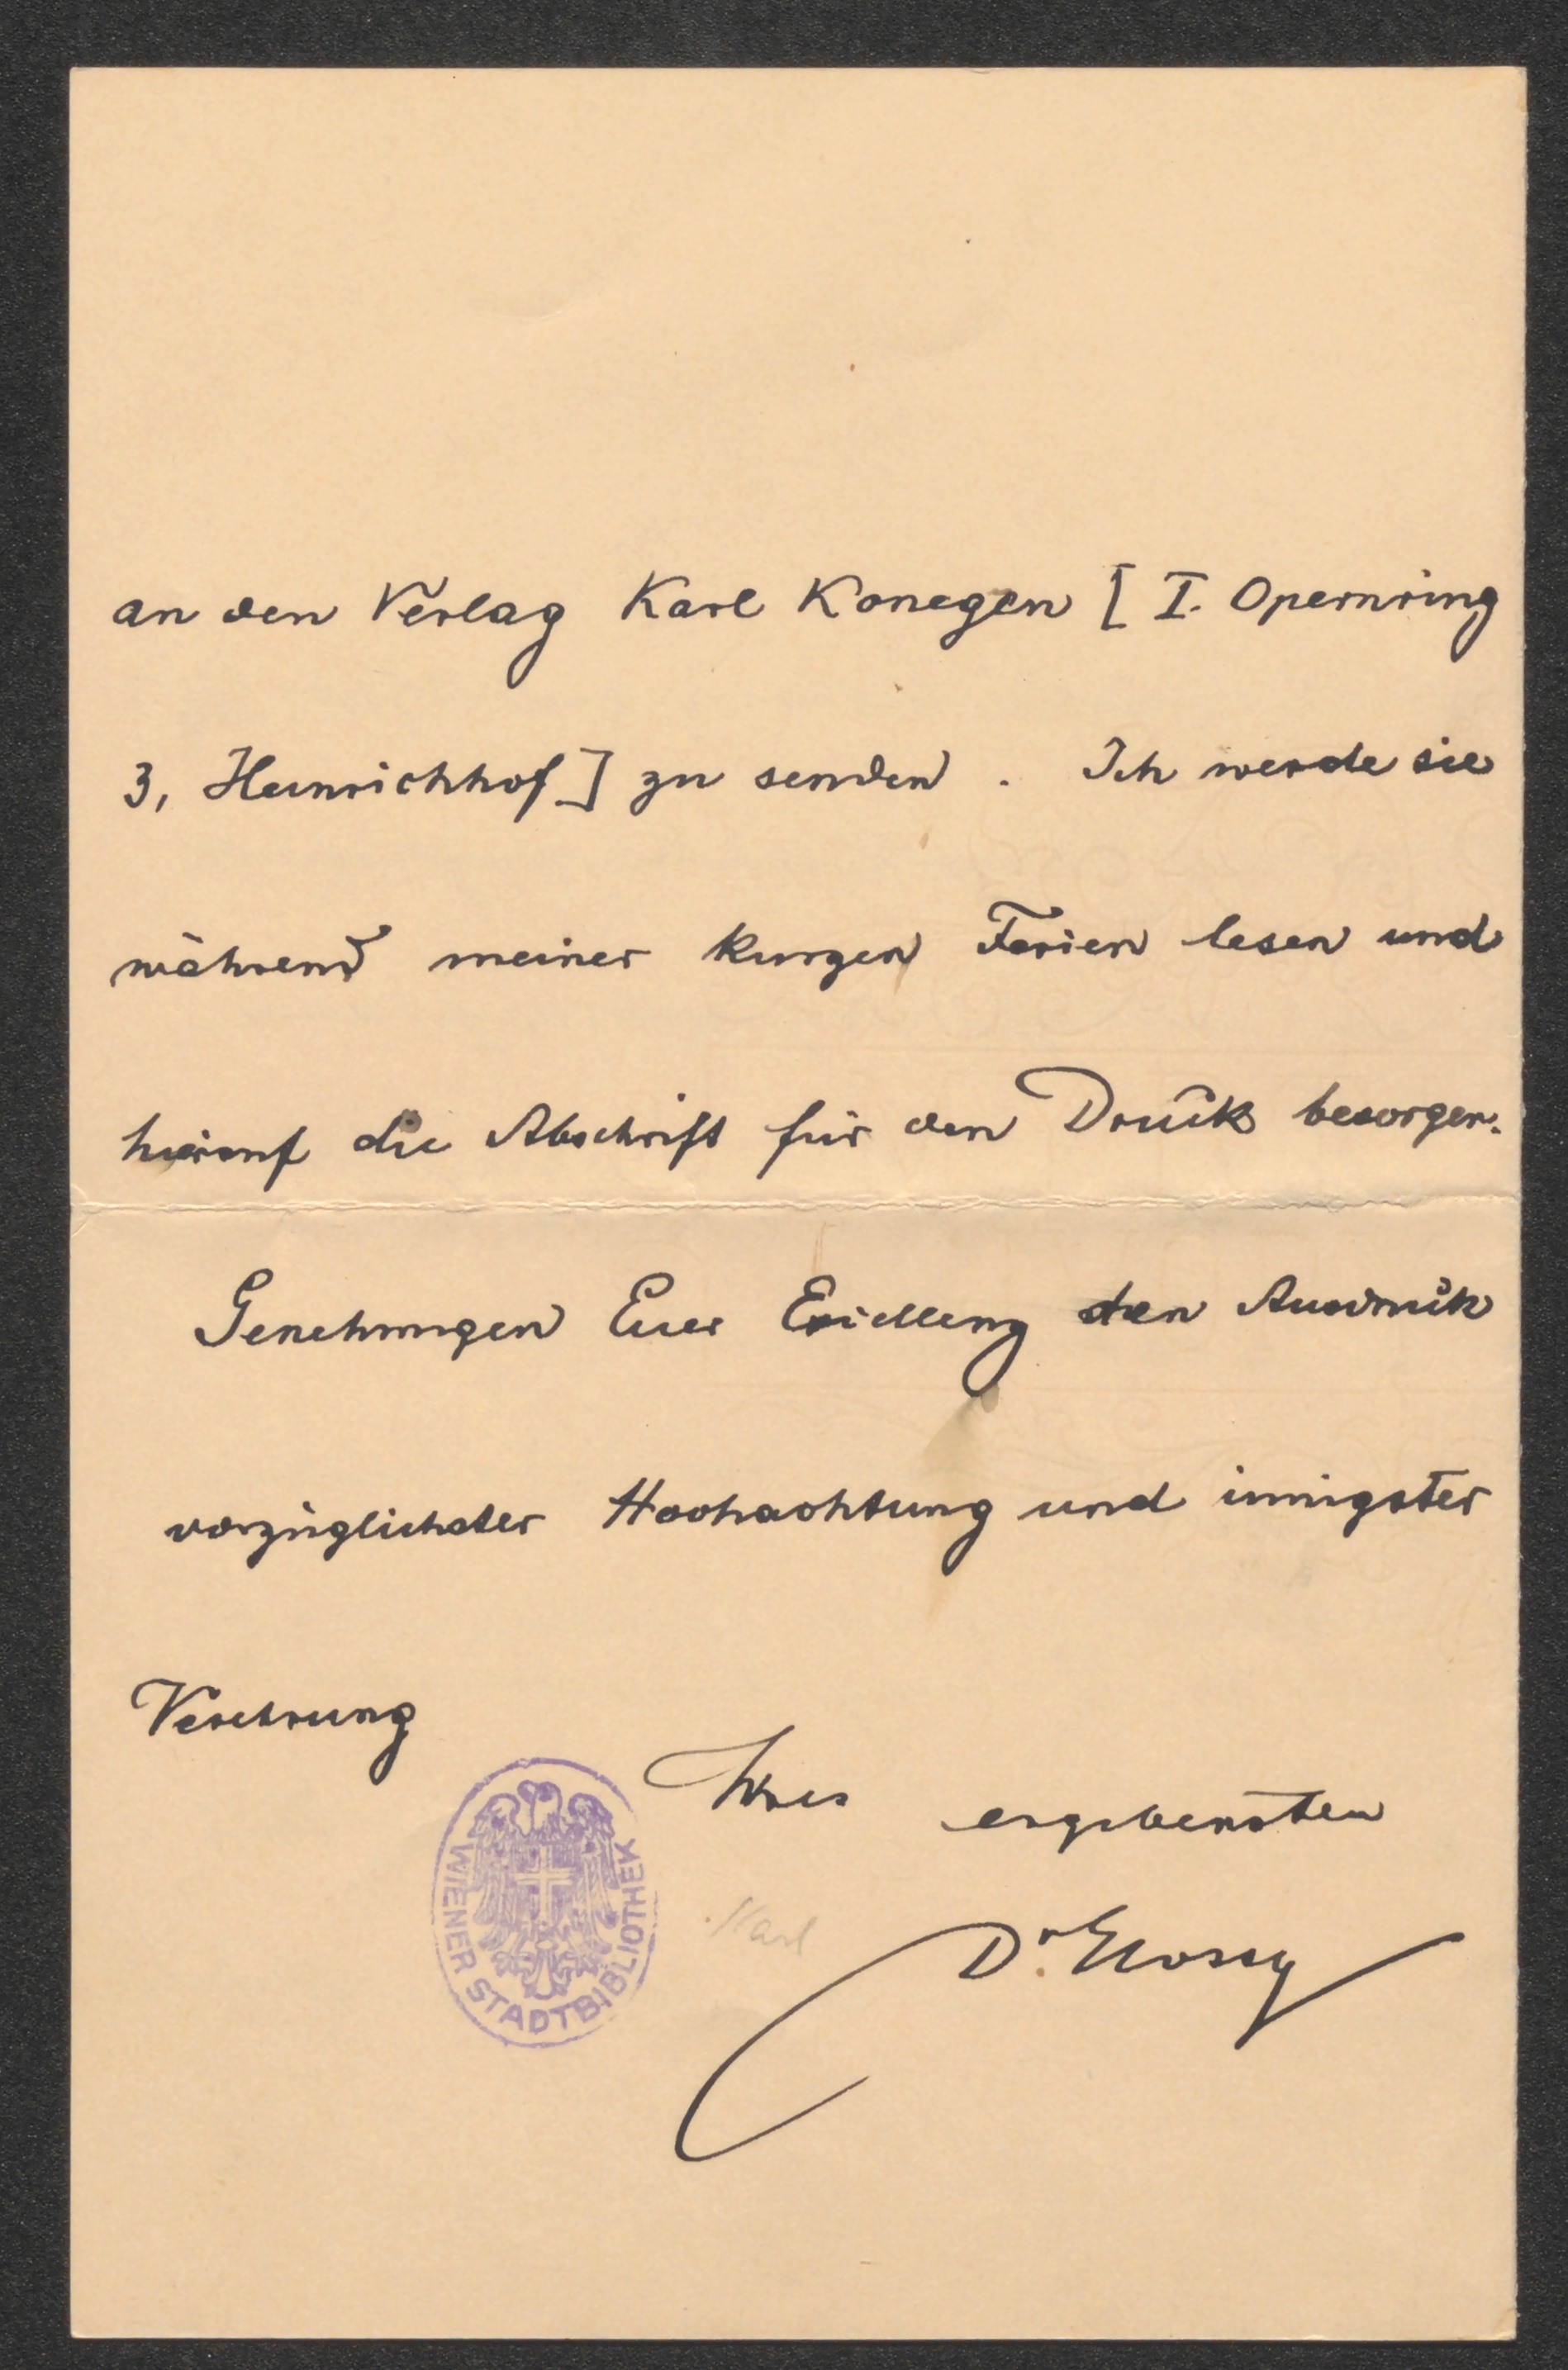 an den Verlag Karl Konegen [ I. Opernring
3, Heinrichhof ] zu senden. Ich werde sie
während meiner kurzen Ferien lesen und
hierauf die Abschrift für den Druck besorgen.
Genehmigen Euer Exzellenz den Ausdruck
vorzüglichster Hochachtung und innigster
Verehrung
Ihres ergebensten
Karl
Dr. Glossy
WIENER STADTBIBLIOTHEK